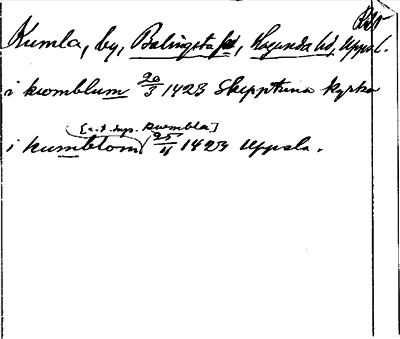 Kumla, by, Balingsta sn, Hagunda hd, Uppsal.
i kwmblum 20/3 1423 Skepptuna kyrka
[a.t. dups. kwembla]
i kumblom 25/4 1423 Uppsala.